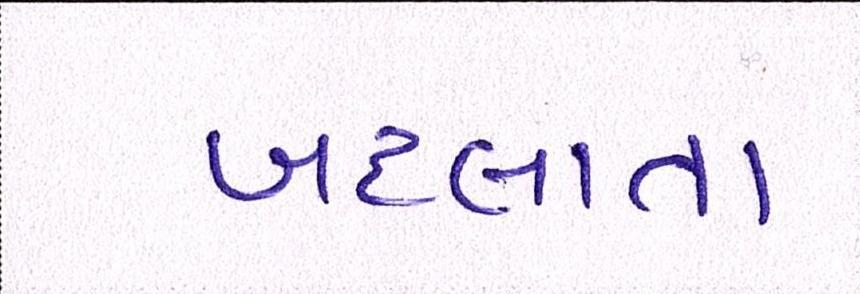 બદલાતા